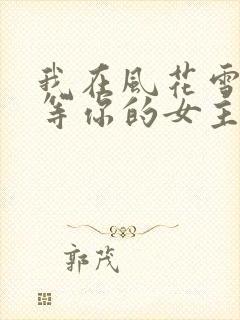 我在風花雪
等你的女主
郭茂